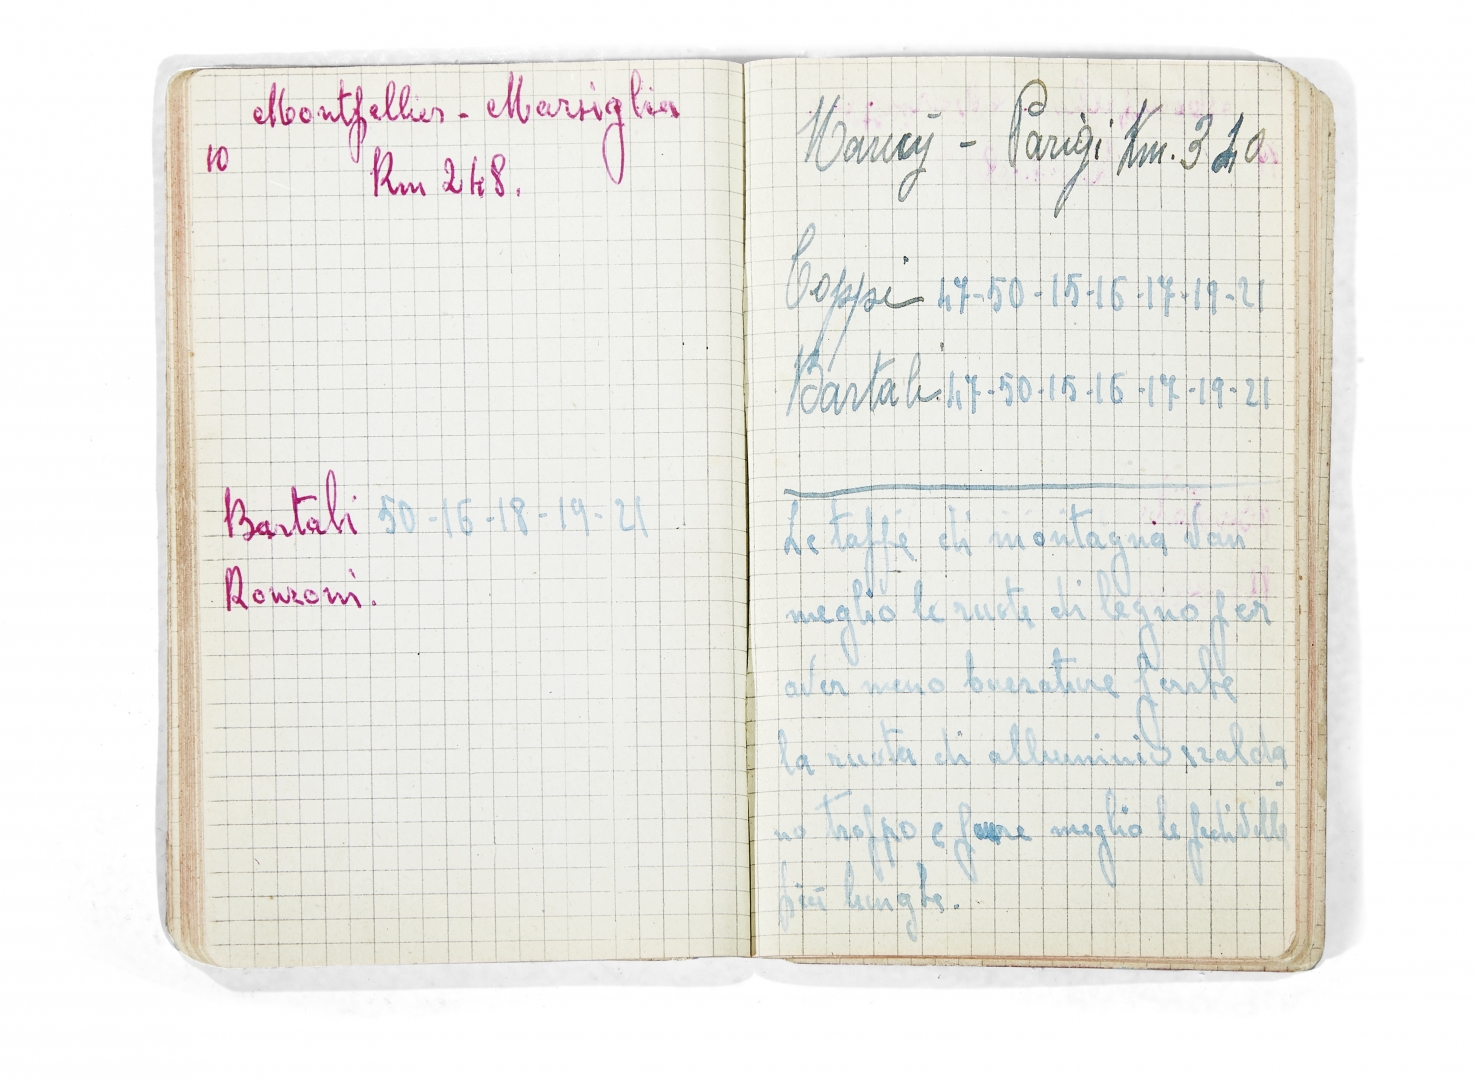 Montpellier - Marsiglia
10
Km 248.
Bartali 50-16-18-19-21
Ronzoni.
Nancÿ - Parigi Km. 340
Coppi 47-50-15-16-17-19-21
Bartali 47-50-15-16-17-19-21
Le tappe di montagna van
meglio le ruote di legno per
aver meno bucature perche
la ruota di alluminio scalda
no troppo e pure meglio le pedivelle
più lunghe.